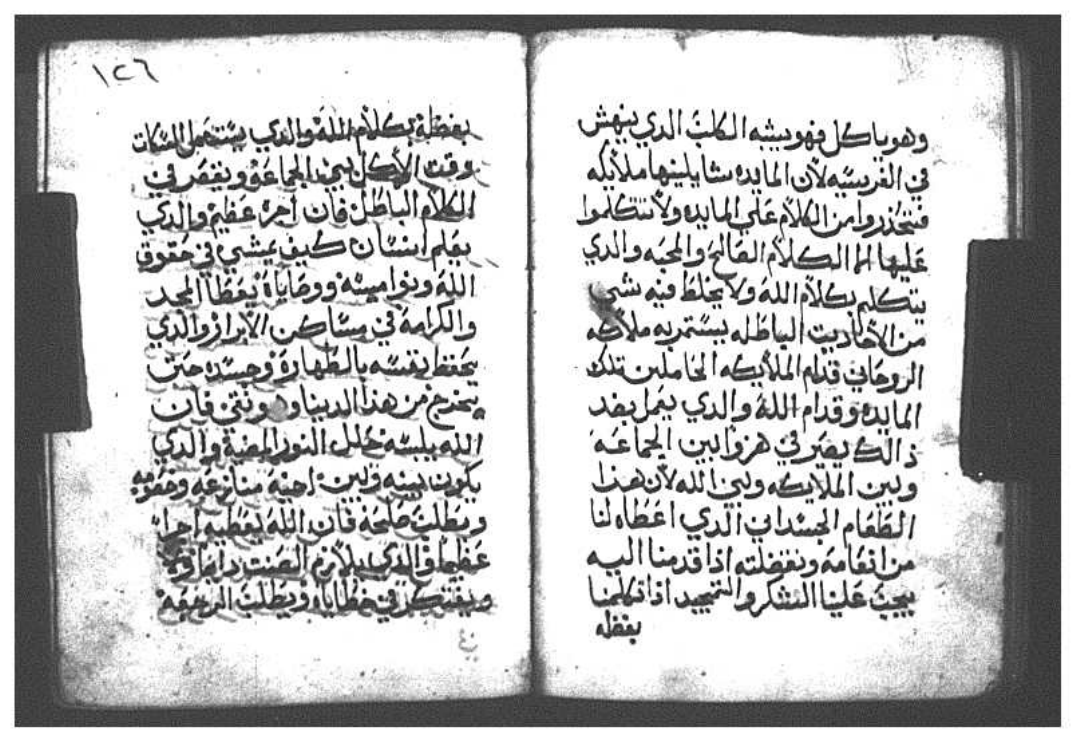 وهو ياكل فهو يشبه الكلب الدي ينهش
في الفريسه لان المايده شايلينها ملايكه
فتحدروا من الكلام علي المايده ولا تتكلموا
عليها الا الكلام الصالح والمحبه والدي
يتكلم بكلام الله ولا يخلط فيه شي
من الاحاديت الباطله يستمر به ملاكه
الروحاني قدام الملايكه الحاملين تلك
المايده وقدام الله والدي يعمل بضد
دالك يصير في هزوا بين الجماعه
وبين الملايكه وبين الله لان هدا
الطعام الجسداني الدي اعطاه لنا
من انعامه وتفضلته ادا قدمنا اليه
يجب علينا الشكر والتمجيد ادا تكلمنا
بعظه
١٢٦
بعظة بكلام الله والدي يستعمل السكات
وقت الاكل بين الجماعة ويقصر في
الكلام الباطل فان اجره عظيم والدي
يعلم انسان كيف يمشي في حقوق
الله ونواميسه ووصاياه يعطا المجد
والكرامه في مساكن الابرار والدي
يحفظ نفسه بالطهارة وجسده حتى
يخرج من هدا الدنيا وهو نقي فان
الله يلبسه حلل النور المضية والدي
يكون بينه وبين اخيه منازعه وخصومه
ويطلب صلحه فان الله يعطيه اجرا
عظيما والدي يلازم الصمت دايما
ويفتكر في خطاياه ويطلب الرحمة